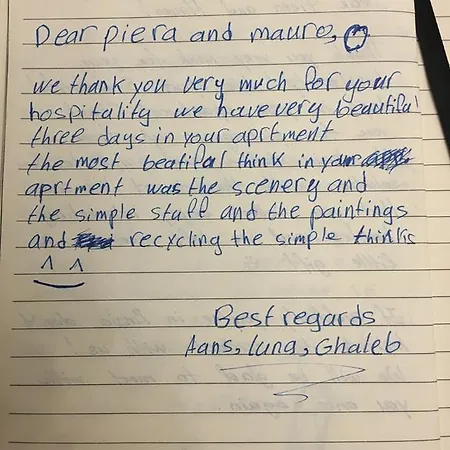 Dear piera and mauro,
we thank you very much for your
hospitality we have very beautiful
three days in your aprtment
the most beatifal think in your
aprtment was the scenery and
the simple staff and the paintings
and recycling the simple thinks
^ ^
Best regards
Aans, luna, Ghaleb